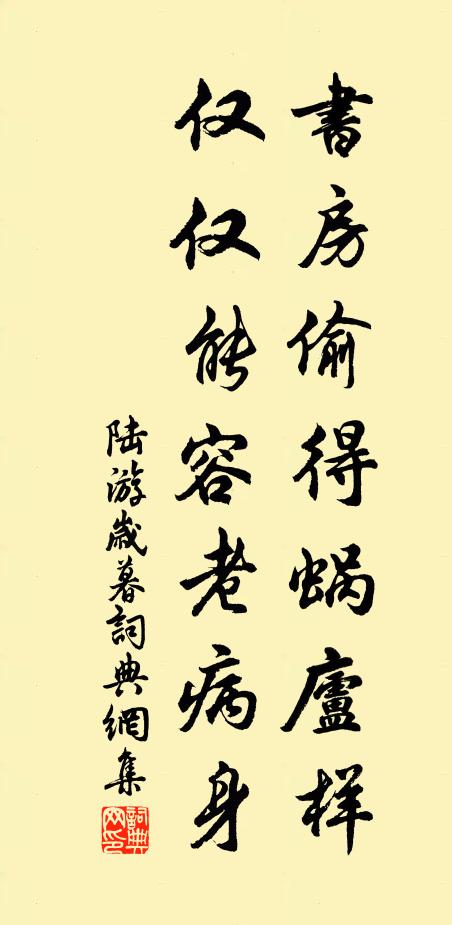 書房偷得蜗廬样
仅仅能容老病身
陆游歲暮詞典網集
詞典网印